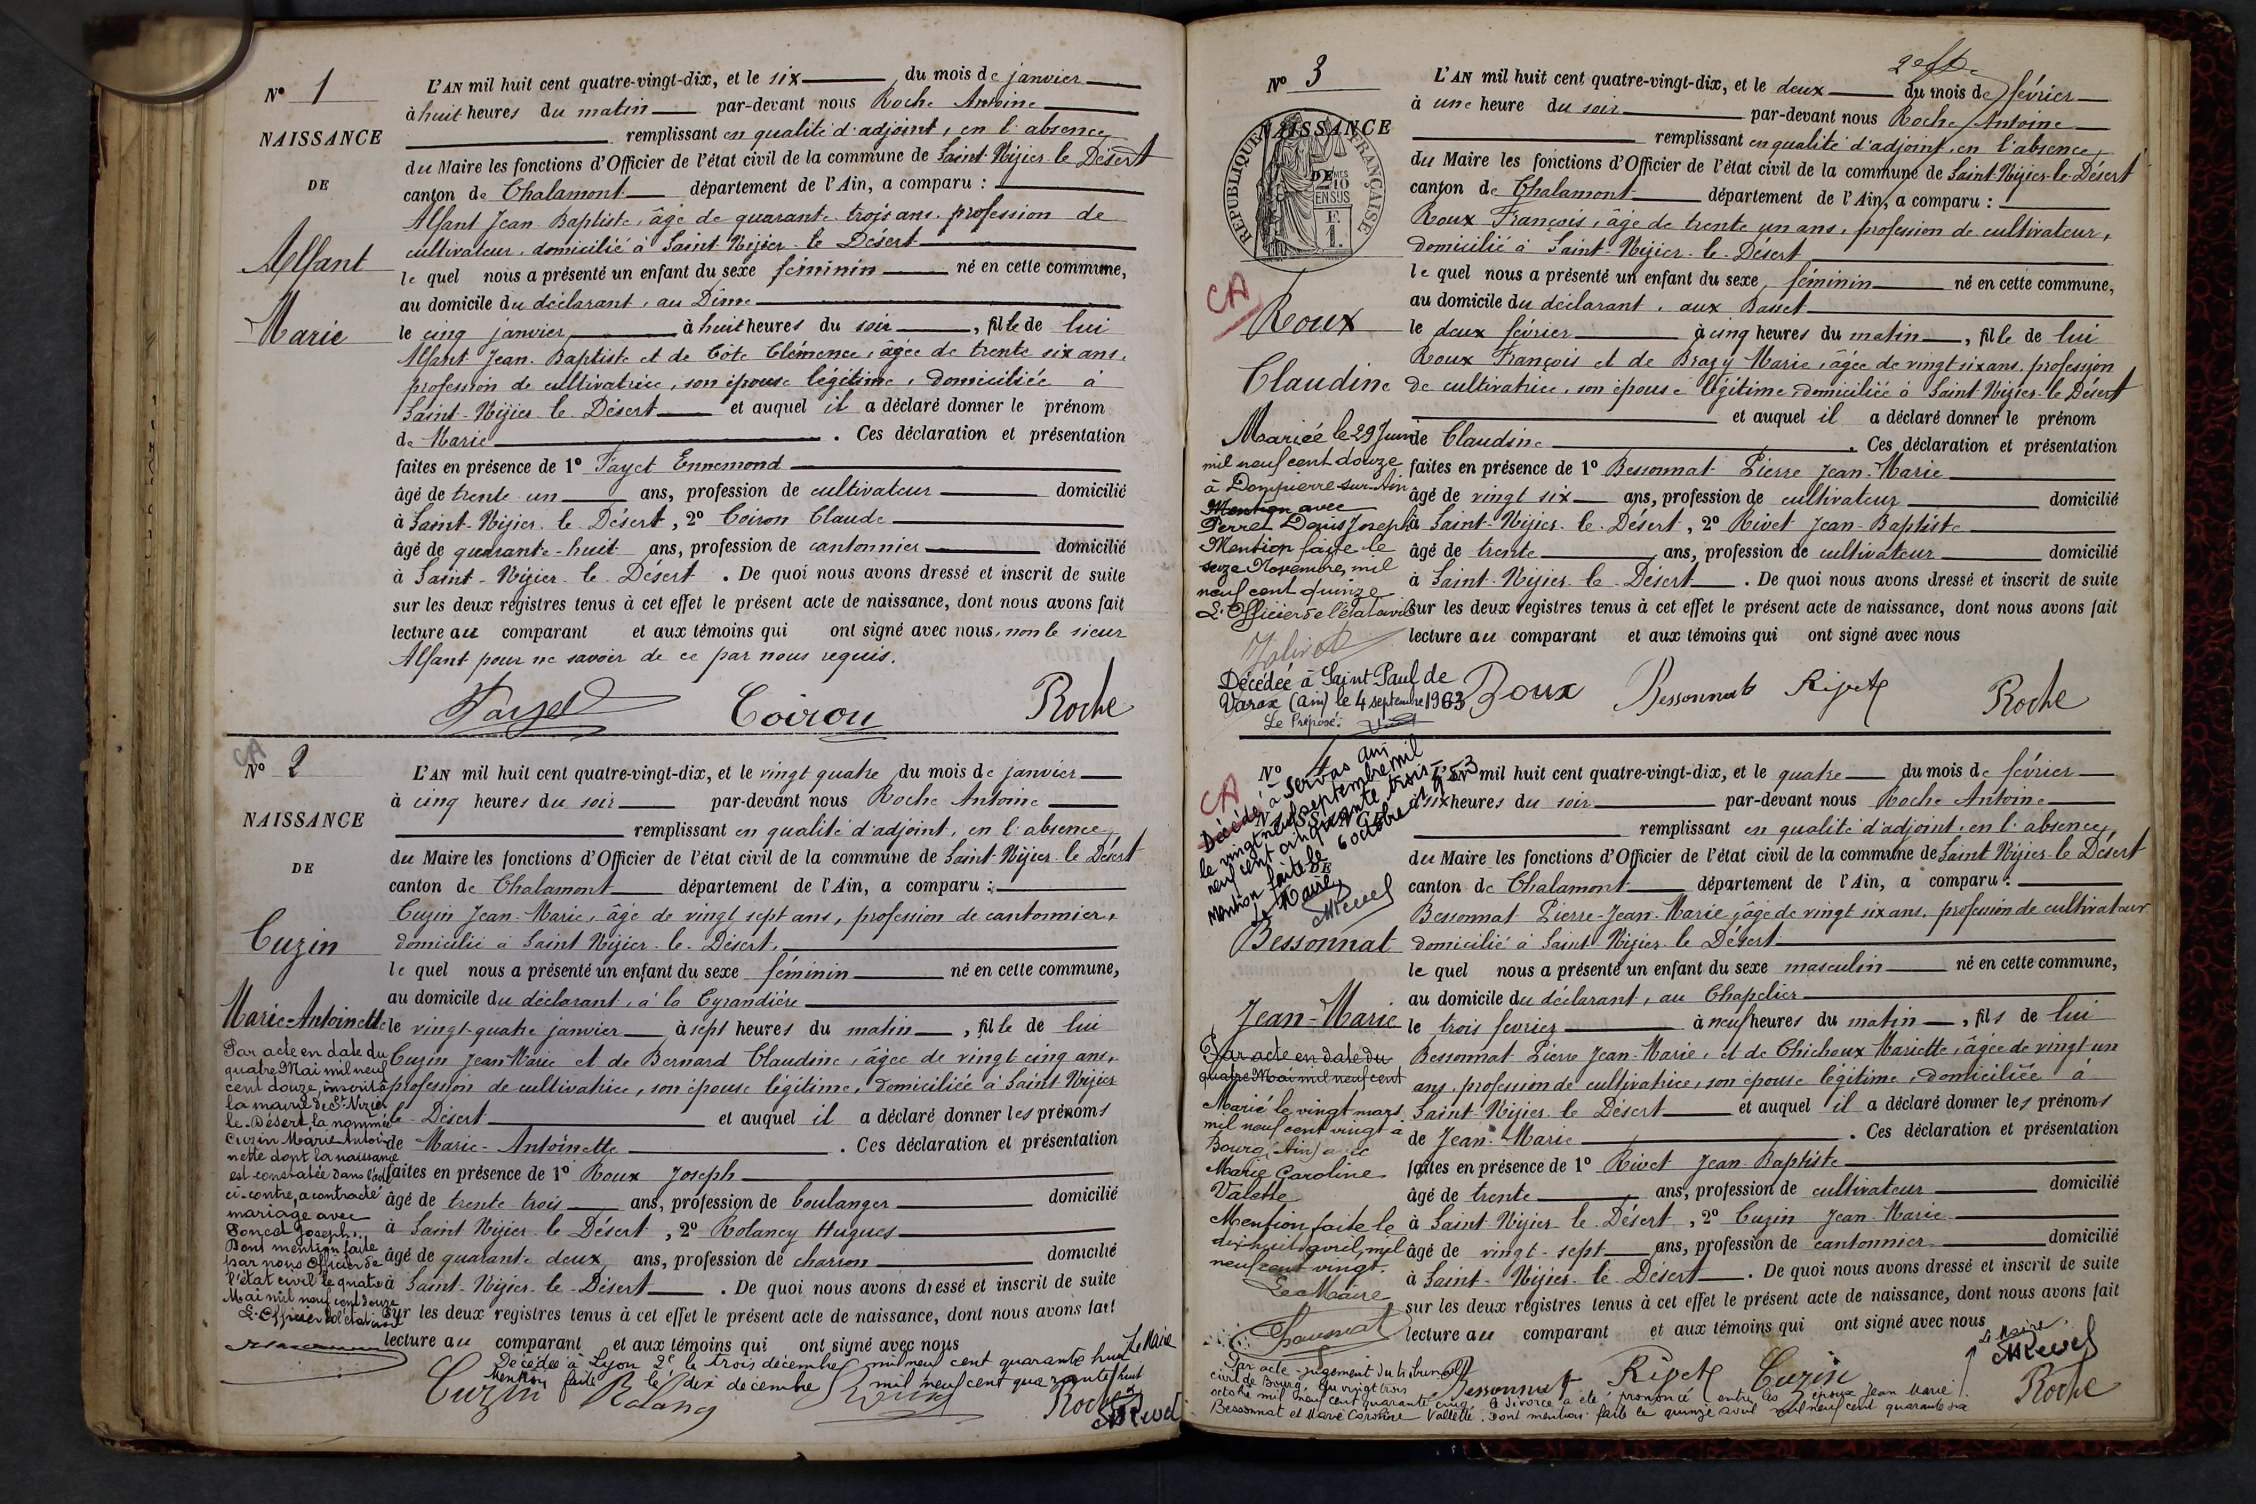 N° 1
NAISSANCE
DE
Alfant
Marie
L'AN mil huit cent quatre-vingt-dix, et le six du mois de janvier
à huit heures du matin par-devant nous Roche Antoine
remplissant en qualité d'adjoint, en l'absence,
du Maire les fonctions d'Officier de l'état civil de la commune de Saint-Nizier-le-Désert
canton de Chalamont département de l'Ain, a comparu :
Alfant Jean Baptiste, âgé de quarante-trois ans, profession de
cultivateur, domicilié à Saint-Nizier-le-Désert
le quel nous a présenté un enfant du sexe féminin né en cette commune,
au domicile du déclarant, au Dime
le cinq janvier à huit heures du soir, fille de lui
Alfant Jean-Baptiste et de Côte Clémence, âgée de trente six ans,
profession de cultivatrice, son épouse légitime, domiciliée à
Saint-Nizier-le-Désert et auquel il a déclaré donner le prénom
de Marie. Ces déclaration et présentation
faites en présence de 1° Fayet Ennemond
âgé de trente un ans, profession de cultivateur domicilié
à Saint-Nizier-le-Désert, 2° Coiron Claude
âgé de quarante-huit ans, profession de cantonnier domicilié
à Saint-Nizier-le-Désert. De quoi nous avons dressé et inscrit de suite
sur les deux registres tenus à cet effet le présent acte de naissance, dont nous avons fait
lecture au comparant et aux témoins qui ont signé avec nous, non le sieur
Alfant pour ne savoir de ce par nous requis.
Fayet Coiron Roche
CA
N° 2
NAISSANCE
DE
Cuzin
Marie-Antoinette
Par acte en date du
quatre Mai mil neuf
cent douze, inscrit à
la mairie de St Nizier
le-Désert, la nommée
Cuzin Marie Antoi-
nette dont la naissance
est constatée dans l'acte
ci-contre, a contracté
mariage avec
Joseph.
Dont mention faite
par nous Officier de
l'état civil le quatre
Mai mil neuf cent douze
L'Officier de l'état civil
L'AN mil huit cent quatre-vingt-dix, et le vingt quatre du mois de janvier
à cinq heures du soir par-devant nous Roche Antoine
remplissant en qualité d'adjoint, en l'absence,
du Maire les fonctions d'Officier de l'état civil de la commune de Saint-Nizier-le-Désert
canton de Chalamont département de l'Ain, a comparu :
Cuzin Jean-Marie, âgé de vingt sept ans, profession de cantonnier,
domicilié à Saint Nizier-le-Désert,
le quel nous a présenté un enfant du sexe féminin né en cette commune,
au domicile du déclarant, à la Cyrandière
le vingt-quatre janvier à sept heures du matin, fille de lui
Cuzin Jean-Marie et de Bernard Claudine, âgée de vingt cinq ans,
profession de cultivatrice, son épouse légitime, domiciliée à Saint Nizier
le-Désert et auquel il a déclaré donner les prénoms
de Marie-Antoinette. Ces déclaration et présentation
faites en présence de 1° Roux Joseph
âgé de trente trois ans, profession de boulanger domicilié
à Saint Nizier le Désert, 2° Rolancy Hugues
âgé de quarante deux ans, profession de charron domicilié
à Saint-Nizier-le-Désert. De quoi nous avons dressé et inscrit de suite
sur les deux registres tenus à cet effet le présent acte de naissance, dont nous avons fait
lecture au comparant et aux témoins qui ont signé avec nous
Décédée à Lyon 2e le trois décembre mil neuf cent quarante huit Le Maire
Mention faite le dix décembre mil neuf cent quarante huit
Cuzin Rolancy Roux Roche
N° 3
NAISSANCE
DE
RÉPUBLIQUE FRANÇAISE
CA
Roux
Claudine
Mariée le 29 Juin
mil neuf cent douze
à Dompierre-sur-Ain
Mention avec
Perret Denis Joseph
Mention faite le
seize Novembre, mil
neuf cent quinze
L'Officier de l'état civil
Décédée à Saint-Paul de
Varax (Ain) le 4 septembre 1963
Le Préposé:
L'AN mil huit cent quatre-vingt-dix, et le deux du mois de février
à une heure du soir par-devant nous Roche Antoine
remplissant en qualité d'adjoint, en l'absence,
du Maire les fonctions d'Officier de l'état civil de la commune de Saint-Nizier-le-Désert
canton de Chalamont département de l'Ain, a comparu :
Roux François, âgé de trente un ans, profession de cultivateur,
domicilié à Saint-Nizier-le-Désert
le quel nous a présenté un enfant du sexe féminin né en cette commune,
au domicile du déclarant, aux Basset
le deux février à cinq heures du matin, fille de lui
Roux François et de Brazy Marie, âgée de vingt six ans, profession
de cultivatrice, son épouse légitime, domiciliée à Saint-Nizier-le-Désert
et auquel il a déclaré donner le prénom
de Claudine. Ces déclaration et présentation
faites en présence de 1° Bessonnat Pierre Jean-Marie
âgé de vingt six ans, profession de cultivateur domicilié
à Saint-Nizier-le-Désert, 2° Rivet Jean-Baptiste
âgé de trente ans, profession de cultivateur domicilié
à Saint-Nizier-le-Désert. De quoi nous avons dressé et inscrit de suite
sur les deux registres tenus à cet effet le présent acte de naissance, dont nous avons fait
lecture au comparant et aux témoins qui ont signé avec nous
Roux Bessonnat Rivet Roche
N° 4
CA
NAISSANCE
DE
Décédé à Servas Ain
le vingt neuf septembre mil
neuf cent cinquante trois
Mention faite le 6 octobre 1953
Le Maire
Bessonnat
Jean-Marie
Par acte en date du
quatre Mai mil neuf cent
Marié le vingt mars
mil neuf cent vingt à
Bourg (Ain) avec
Marie Caroline
Valette
Mention faite le
dix huit avril, mil
neuf cent vingt.
Le Maire
L'AN mil huit cent quatre-vingt-dix, et le quatre du mois de février
à six heures du soir par-devant nous Roche Antoine
remplissant en qualité d'adjoint, en l'absence,
du Maire les fonctions d'Officier de l'état civil de la commune de Saint Nizier-le-Désert
canton de Chalamont département de l'Ain, a comparu :
Bessonnat Pierre-Jean-Marie, âgé de vingt six ans, profession de cultivateur
domicilié à Saint-Nizier-le Désert
le quel nous a présenté un enfant du sexe masculin né en cette commune,
au domicile du déclarant, au Chapelier
le trois février à neuf heures du matin, fils de lui
Bessonnat Pierre Jean-Marie, et de Chichoux Mariette, âgée de vingt un
ans, profession de cultivatrice, son épouse légitime, domiciliée à
Saint-Nizier le Désert et auquel il a déclaré donner les prénoms
de Jean-Marie. Ces déclaration et présentation
faites en présence de 1° Rivet Jean-Baptiste
âgé de trente ans, profession de cultivateur domicilié
à Saint-Nizier le Désert, 2° Cuzin Jean-Marie
âgé de vingt-sept ans, profession de cantonnier domicilié
à Saint-Nizier-le-Désert. De quoi nous avons dressé et inscrit de suite
sur les deux registres tenus à cet effet le présent acte de naissance, dont nous avons fait
lecture au comparant et aux témoins qui ont signé avec nous
Bessonnat Rivet Cuzin Roche
Le Maire
Par acte - jugement du tribunal
civil de Bourg, du vingt trois
octobre mil neuf cent quarante cinq, le divorce a été prononcé entre les époux Jean Marie
Bessonnat et Marie Caroline Vallette. Dont mention faite le quinze avril mil neuf cent quarante six